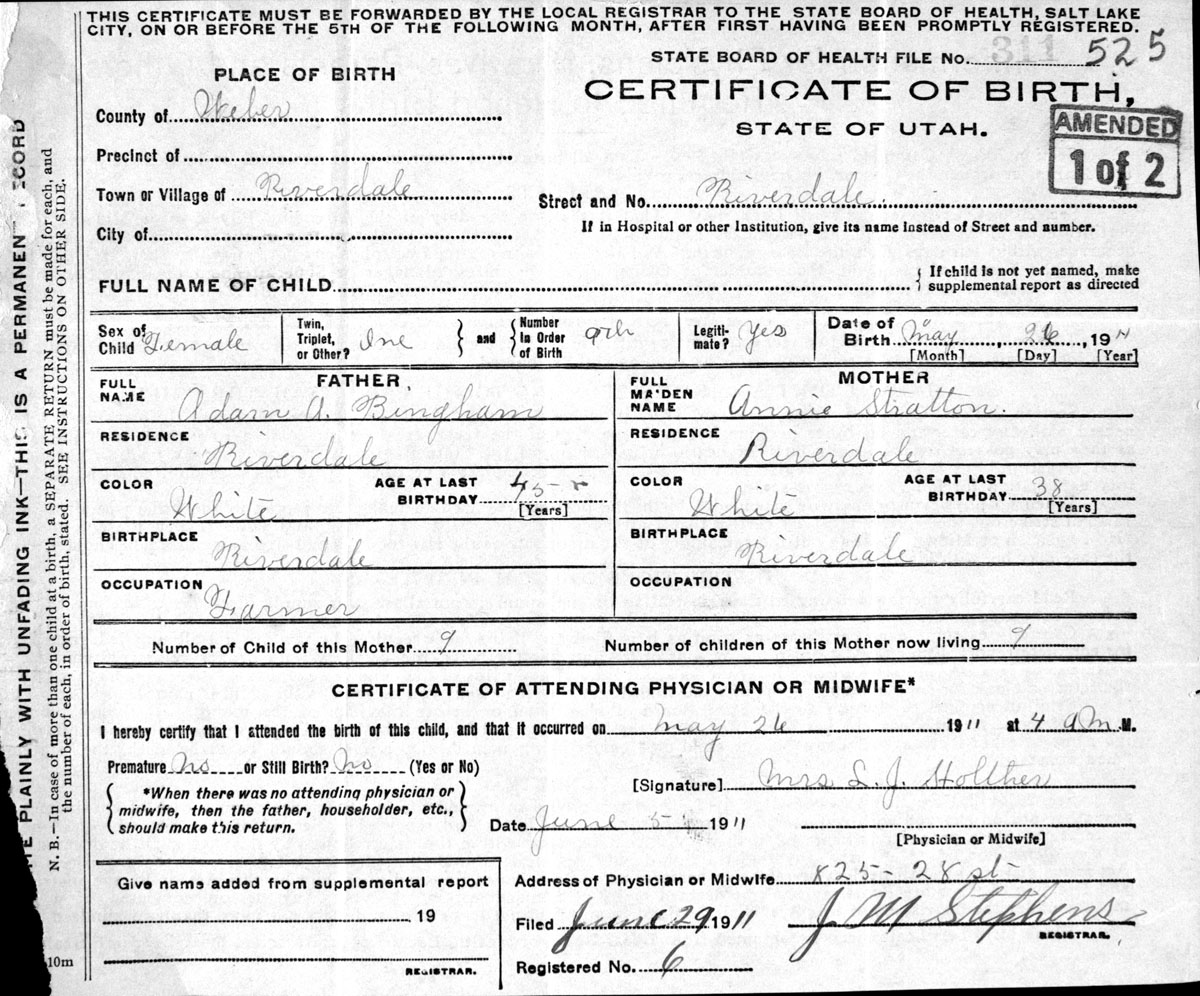 THIS CERTIFICATE MUST BE FORWARDED BY THE LOCAL REGISTRAR TO THE STATE BOARD OF HEALTH, SALT LAKE
CITY, ON OR BEFORE THE 5TH OF THE FOLLOWING MONTH, AFTER FIRST HAVING BEEN PROMPTLY REGISTERED.
STATE BOARD OF HEALTH FILE No. 311 525
PLACE OF BIRTH
CERTIFICATE OF BIRTH,
STATE OF UTAH.
AMENDED
1 of 2
County of Weber
Precinct of
Town or Village of Riverdale
Street and No. Riverdale.
City of
If in Hospital or other Institution, give its name instead of Street and number.
FULL NAME OF CHILD
{ If child is not yet named, make
supplemental report as directed
Sex of Child Female
Twin, Triplet, or Other? One } and { Number In Order of Birth 9th
Legitimate? Yes
Date of Birth May 26, 1911
[Month] [Day] [Year]
FATHER,
FULL NAME Adam A. Bingham
RESIDENCE Riverdale
COLOR White AGE AT LAST BIRTHDAY 45 [Years]
BIRTHPLACE Riverdale
OCCUPATION Farmer
MOTHER
FULL MAIDEN NAME Annie Stratton.
RESIDENCE Riverdale
COLOR White AGE AT LAST BIRTHDAY 38 [Years]
BIRTHPLACE Riverdale
OCCUPATION
Number of Child of this Mother 9 Number of children of this Mother now living 9
CERTIFICATE OF ATTENDING PHYSICIAN OR MIDWIFE*
I hereby certify that I attended the birth of this child, and that it occurred on May 26 1911 at 4 am M.
Premature No or Still Birth? No (Yes or No)
{ *When there was no attending physician or
midwife, then the father, householder, etc.,
should make this return. }
[Signature] Mrs L. J. Holther
Date June 5 1911
[Physician or Midwife]
Give name added from supplemental report
19
REGISTRAR.
Address of Physician or Midwife 825 - 28 st
Filed June 29 1911 J M Stephens
REGISTRAR.
Registered No. 6
10m
PLAINLY WITH UNFADING INK—THIS IS A PERMANENT RECORD
N. B.—In case of more than one child at a birth, a SEPARATE RETURN must be made for each, and
the number of each, in order of birth, stated. SEE INSTRUCTIONS ON OTHER SIDE.